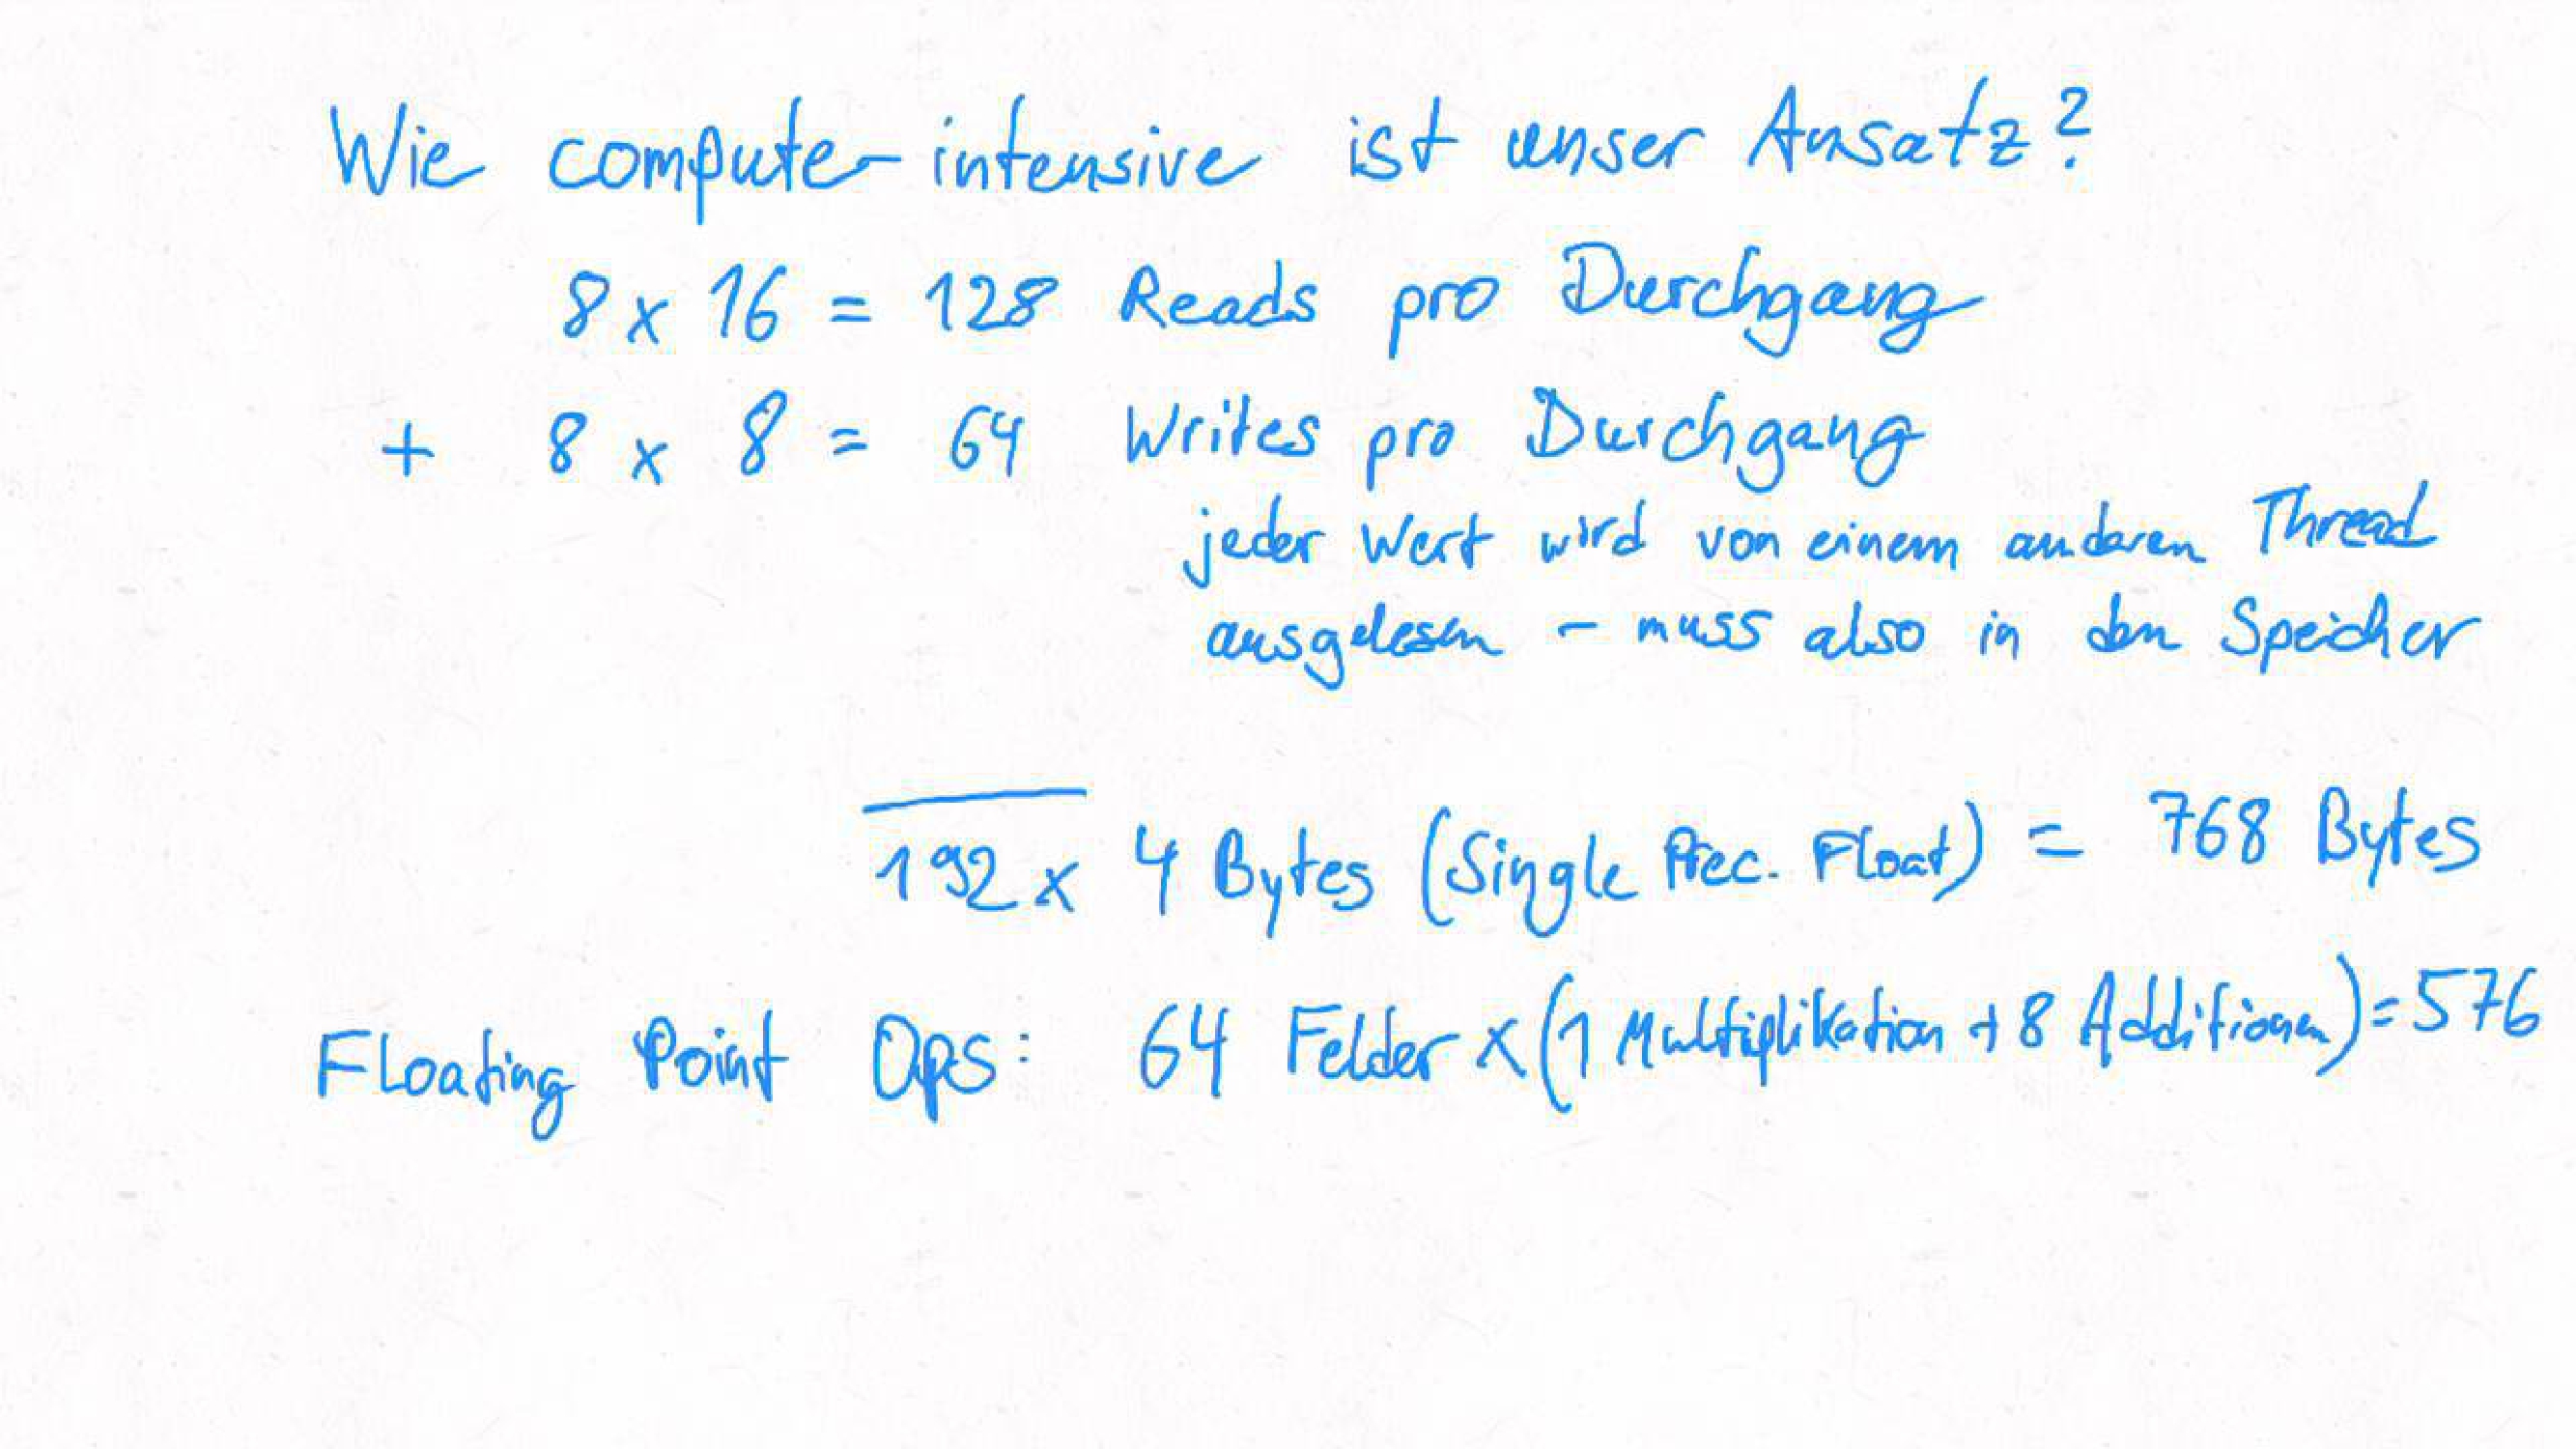 Wie compute-intensive ist unser Ansatz?
8 x 16 = 128 Reads pro Durchgang
+ 8 x 8 = 64 Writes pro Durchgang
jeder Wert wird von einem anderen Thread
ausgelesen - muss also in den Speicher
192 x 4 Bytes (Single Prec. Float) = 768 Bytes
Floating Point Ops: 64 Felder x (1 Multiplikation + 8 Additionen) = 576